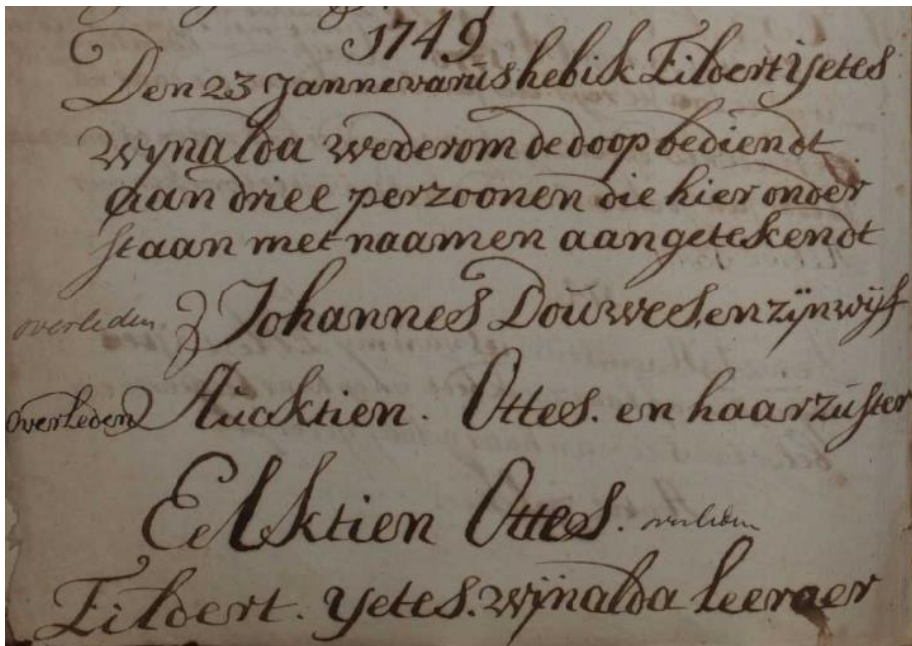 1749
Den 23 Jannevarius heb ik Eildert Yetes
Wynalda wederom de doop bediendt
aan driee perzoonen die hier onder
staan met naamen aangetekendt
overleden Johannes Douwes, en zijn wijf
overleden Auaktien. Ottes. en haar zuster
Eelktien Ottes. overleden
Eildert. Yetes. Wijnalda leeraer